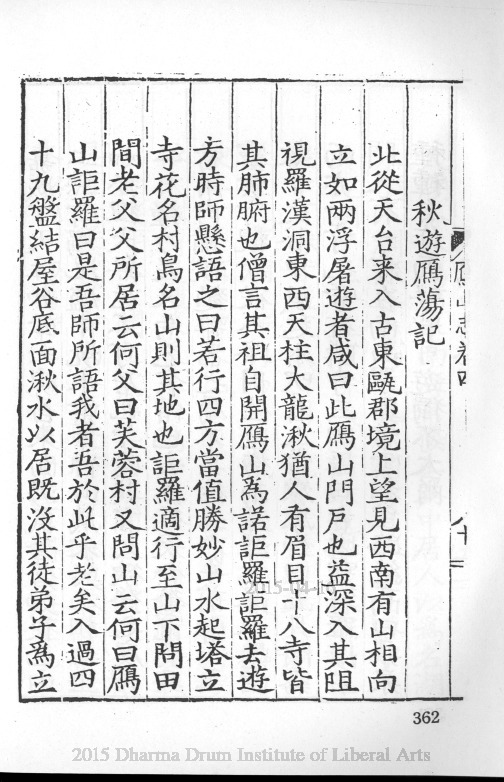 鴈山志卷四
十二
秋遊鴈蕩記
北從天台來入古東甌郡境上望見西南有山相向
立如兩浮屠遊者咸曰此鴈山門戶也益深入其阻
視羅漢洞東西天柱大龍湫猶人有眉目十八寺皆
其肺腑也僧言其祖自開鴈山為諾詎羅詎羅去遊
方時師懸語之曰若行四方當值勝妙山水起塔立
寺花名村鳥名山則其地也詎羅適行至山下問田
間老父父所居云何父曰芙蓉村又問山云何曰鴈
山詎羅曰是吾師所語我者吾於此乎老矣入過四
十九盤結屋谷底面湫水以居既沒其徒弟子為立
362
2015 Dharma Drum Institute of Liberal Arts